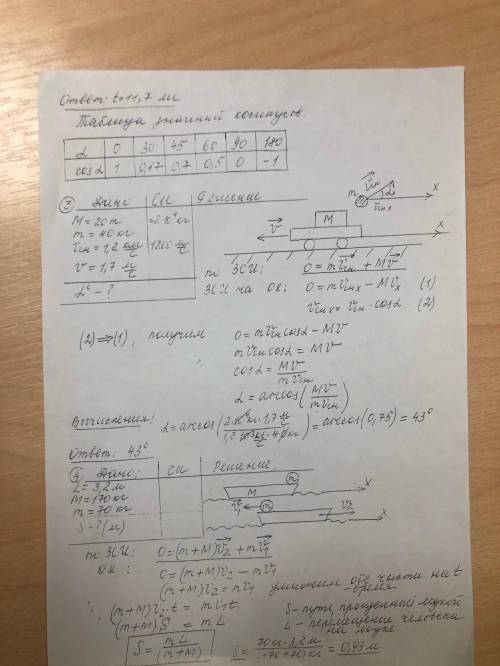 Ответ: t=11,7 м/с
Таблица значений косинусов.
α 0 30 45 60 90 180
cosα 1 0,87 0,7 0,5 0 -1
③ Дано СИ Решение
M=20т =2·10⁴кг
m=40кг
vсн=1,2 км/с 1200 м/с
v=1,7 м/с
α° - ?
m vсн α vснx x
v M x
m ЗСИ: 0=mvсн+Mv
ЗСИ на ох: 0=mvснx-Mvx (1)
vснx=vсн·cosα (2)
(2)⇒(1), получим 0=mvснcosα-Mv
mvснcosα=Mv
cosα=Mv/mvсн
α=arccos(Mv/mvсн)
Вычисления: α=arccos(2·10⁴кг·1,7 м/с / 1,2·10³ м/с·40кг)=arccos(0,75)=43°
Ответ. 43°
④ Дано: СИ Решение
L=3,2м
M=170кг
m=70кг
S-?(м)
m M x
v1 m v2 x
m ЗСИ: 0=(m+M)v2+mv1
ох: 0=(m+M)v2-mv1
(m+M)v2=mv1 умножим обе части на t
-время
∴ (m+M)v2·t=mv1t
S-путь, пройденный лодкой
(m+M)S=mL
L-перемещение человека
на лодке
S=mL/(m+M)
S=70кг·3,2м/(170+70)кг=0,93м